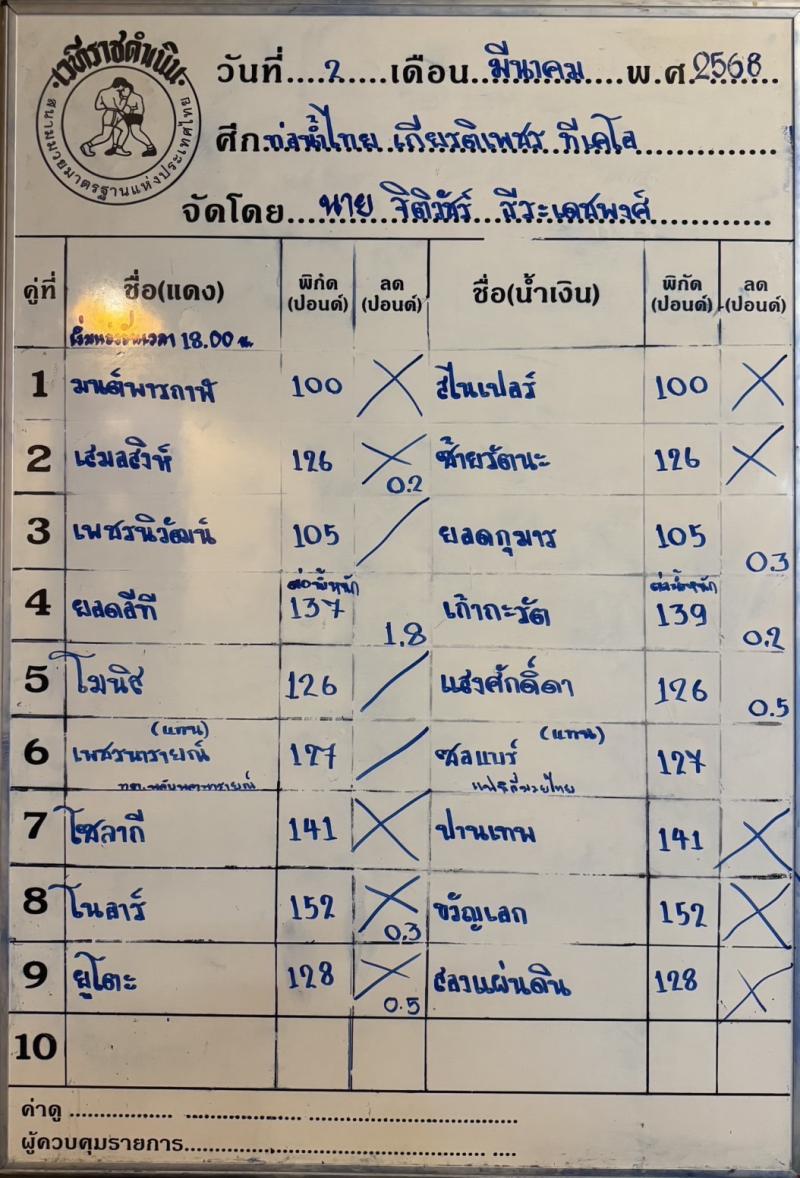 เวทีราชดำเนิน
สนามมวยมาตรฐานแห่งประเทศไทย
วันที่....2.....เดือน..มีนาคม....พ.ศ.2568...
ศึกท่อน้ำไทย เกียรติเพชร ทีเคโอ
จัดโดย...นาย จิติวัชร์ ธีระเดชพงศ์
คู่ที่ ชื่อ(แดง) พิกัด (ปอนด์) ลด (ปอนด์) ชื่อ(น้ำเงิน) พิกัด (ปอนด์) ลด (ปอนด์)
เวลา 18.00 น
1 มนต์พารกาฬ 100 สไนเปอร์ 100
2 เสมอสิงห์ 126 0.2 ซ้ายรัตนะ 126
3 เพชรนิวัฒน์ 105 ยอดกุมาร 105 0.3
4 ยอดสีที ต่อน้ำหนัก 137 1.8 เก้ากะรัต ต่อน้ำหนัก 139 0.2
5 โมนิส 126 แสงศักดิ์ดา 126 0.5
6 เพชรนารายณ์ (แทน) 127 ซอแบร์ (แทน) 127
7 โซลากี 141 ปานเทพ 141
8 โนลาร์ 152 0.3 ขวัญเอก 152
9 ยูโตะ 128 0.5 สองแผ่นดิน 128
10
ค่าดู
ผู้ควบคุมรายการ